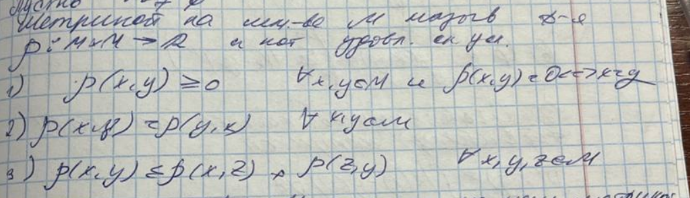 Пусто
метрикой на мн-ве M назыв ф-я
ρ: M×M → R и кот удовл. сл. усл.
1) ρ(x,y) ≥ 0 ∀x,y∈M и ρ(x,y)=0<=>x=y
2) ρ(x,y) = ρ(y,x) ∀x,y∈M
3) ρ(x,y) ≤ ρ(x,z) + ρ(z,y) ∀x,y,z∈M